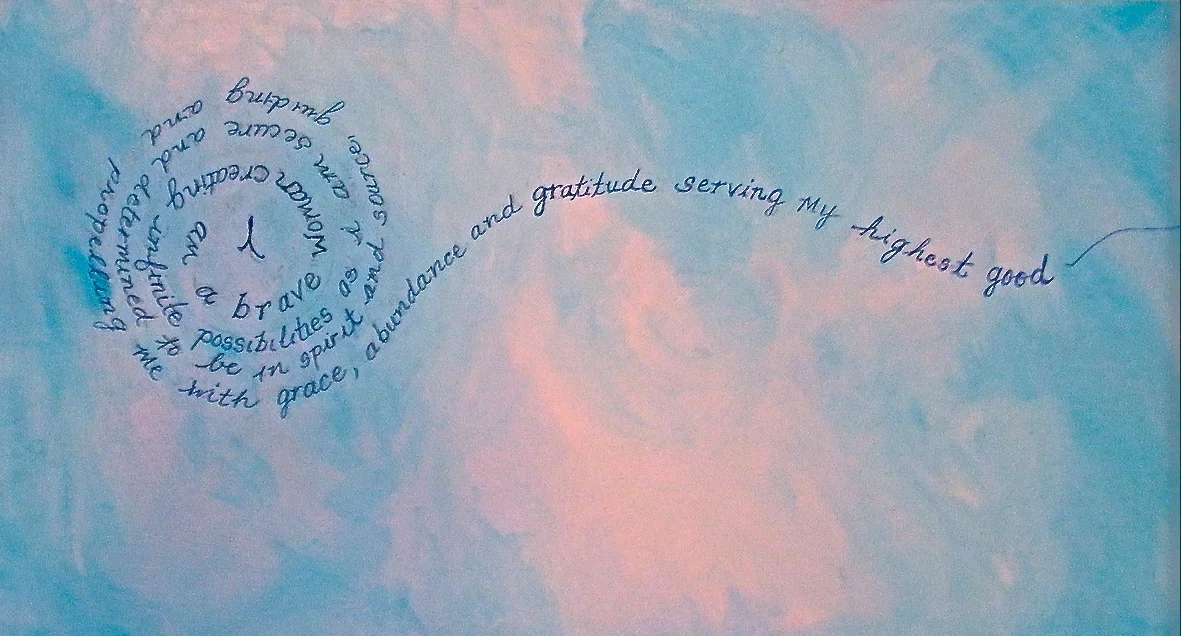 I am a brave woman creating infinite possibilities so I am secure and determined to be in spirit and source, guiding and propelling me with grace, abundance and gratitude serving my highest good